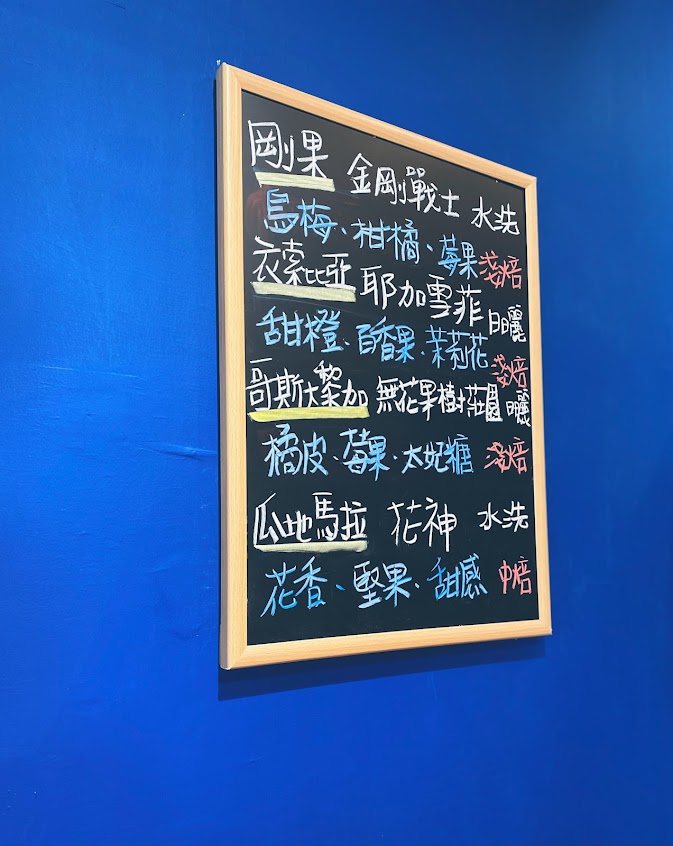 剛果 金剛戰士 水洗
烏梅、柑橘、莓果 淺焙
衣索比亞 耶加雪菲 日曬
甜橙、百香果、茉莉花 淺焙
哥斯大黎加 無花果樹莊園 日曬
橘皮、莓果、太妃糖 淺焙
瓜地馬拉 花神 水洗
花香、堅果、甜感 中焙